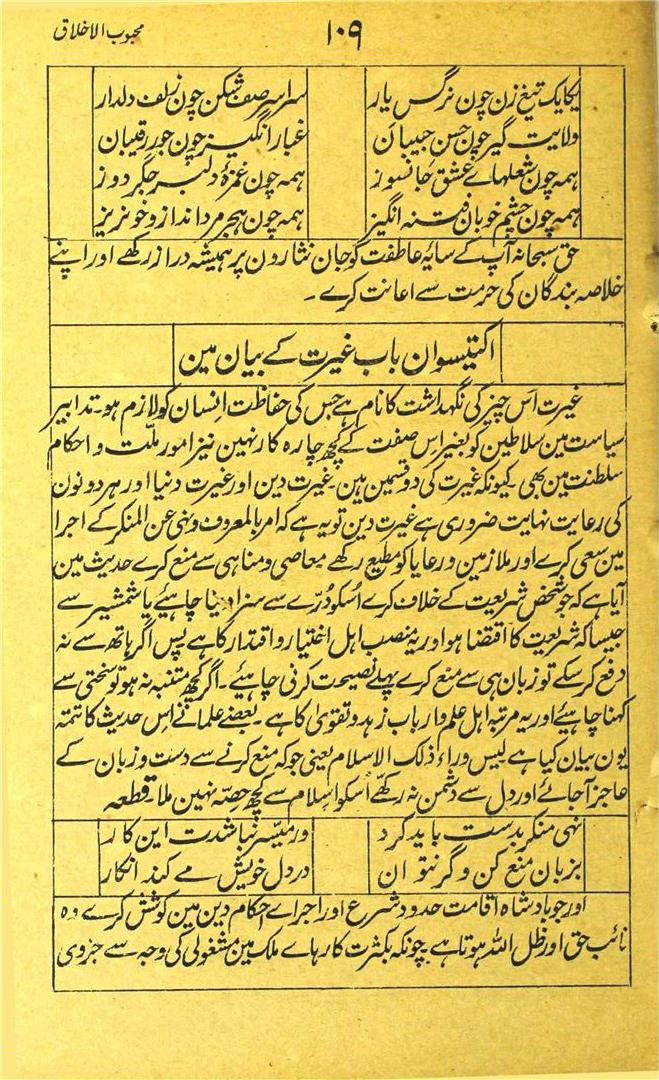 محبوب الاخلاق
۱۰۹
یکایک تیغ زن چون نرگس یار سراسر صف شکن چون زلف دلدار
ولایت گیر چون حسن حبیبان غبار انگیز چون جور رقیبان
ہمہ چون شعلہاے عشق جانسوز ہمہ چون غمزۂ دلبر جگر دوز
ہمہ چون چشم خوبان فتنہ انگیز ہمہ چون ہجر مرد انداز و خونریز
حق سبحانہ آپ کے سایۂ عاطفت کو جان نثارون پر ہمیشہ دراز رکھے اور اپنے
خلاصہ بندگان کی حرمت سے اعانت کرے ۔
اکتیسوان باب غیرت کے بیان مین
غیرت اس چیز کی نگہداشت کا نام ہے جس کی حفاظت انسان کو لازم ہو۔ تدابیر
سیاست مین سلاطین کو بغیر اس صفت کے کچھ چارہ کار نہین نیز امور ملّت و احکام
سلطنت مین بھی ۔ کیونکہ غیرت کی دو قسمین ہین ۔ غیرت دین اور غیرت دنیا اور ہر دونون
کی رعایت نہایت ضروری ہے غیرت دین تو یہ ہے کہ امر بالمعروف و نہی عن المنکر کے اجرا
مین سعی کرے اور ملازمین و رعایا کو مطیع رکھے معاصی و مناہی سے منع کرے حدیث مین
آیا ہے کہ جو شخص شریعت کے خلاف کرے اُسکو دُرّے سے سزا دینا چاہیئے یا شمشیر سے
جیسا کہ شریعت کا اقتضا ہو اور یہ منصب اہل اختیار و اقتدار کا ہے پس اگر ہاتھ سے نہ
دفع کر سکے تو زبان ہی سے منع کرے پہلے نصیحت کرنی چاہیئے ۔ اگر کچھ متنبہ نہ ہو تو سختی سے
کہنا چاہیئے اور یہ مرتبہ اہل علم و ارباب زہد و تقویٰ کا ہے ۔ بعضے علما نے اس حدیث کا تتمہ
یون بیان کیا ہے لیس وراء ذلک الاسلام یعنی جو کہ منع کرنے سے دست و زبان کے
عاجز آجائے اور دل سے دشمن نہ رکھے اُسکو اسلام سے کچھ حصّہ نہین ملا ۔ قطعہ
نہی منکر بدست باید کرد ور میسّر نباشدت این کار
بزبان منع کن و گر نتوان در دل خویش مے کند انکار
اور جو بادشاہ اقامت حدود شرع اور اجراے احکام دین مین کوشش کرے وہ
نائب حق اور ظل اللہ ہوتا ہے چونکہ بکثرت کارہاے ملک مین مشغولی کی وجہ سے جزوی